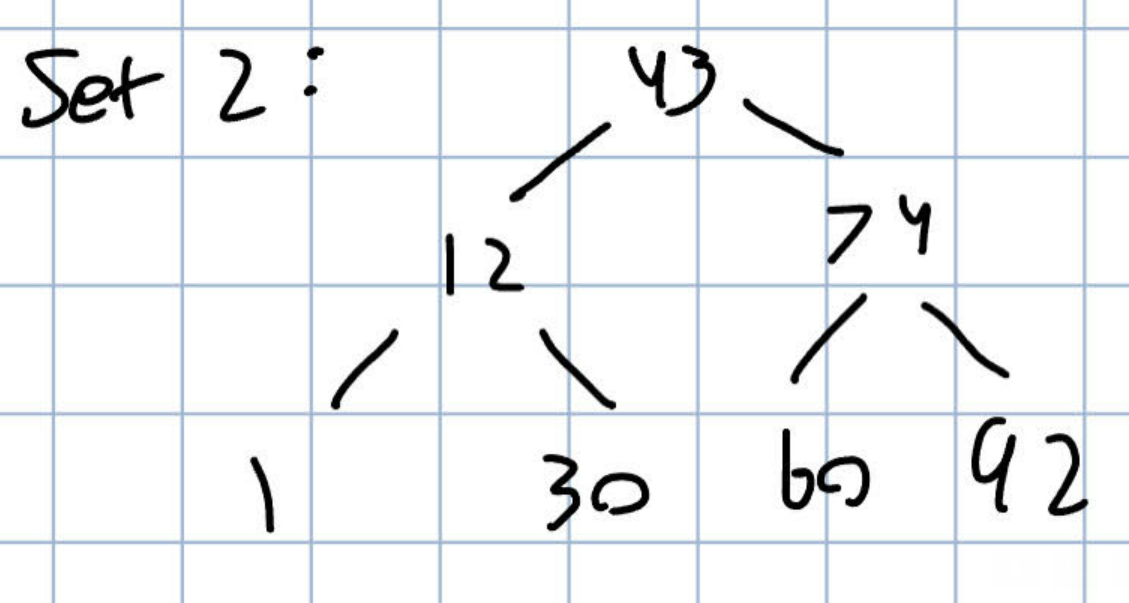 Set 2: 43
12 74
1 30 60 92